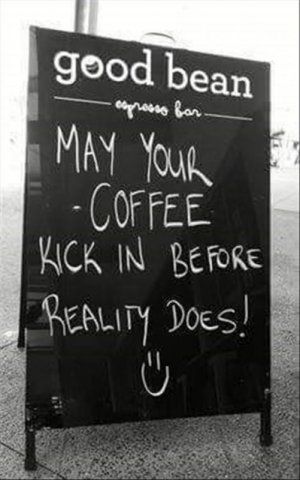 good bean
espresso bar
MAY YOUR
- COFFEE
KICK IN BEFORE
REALITY DOES!